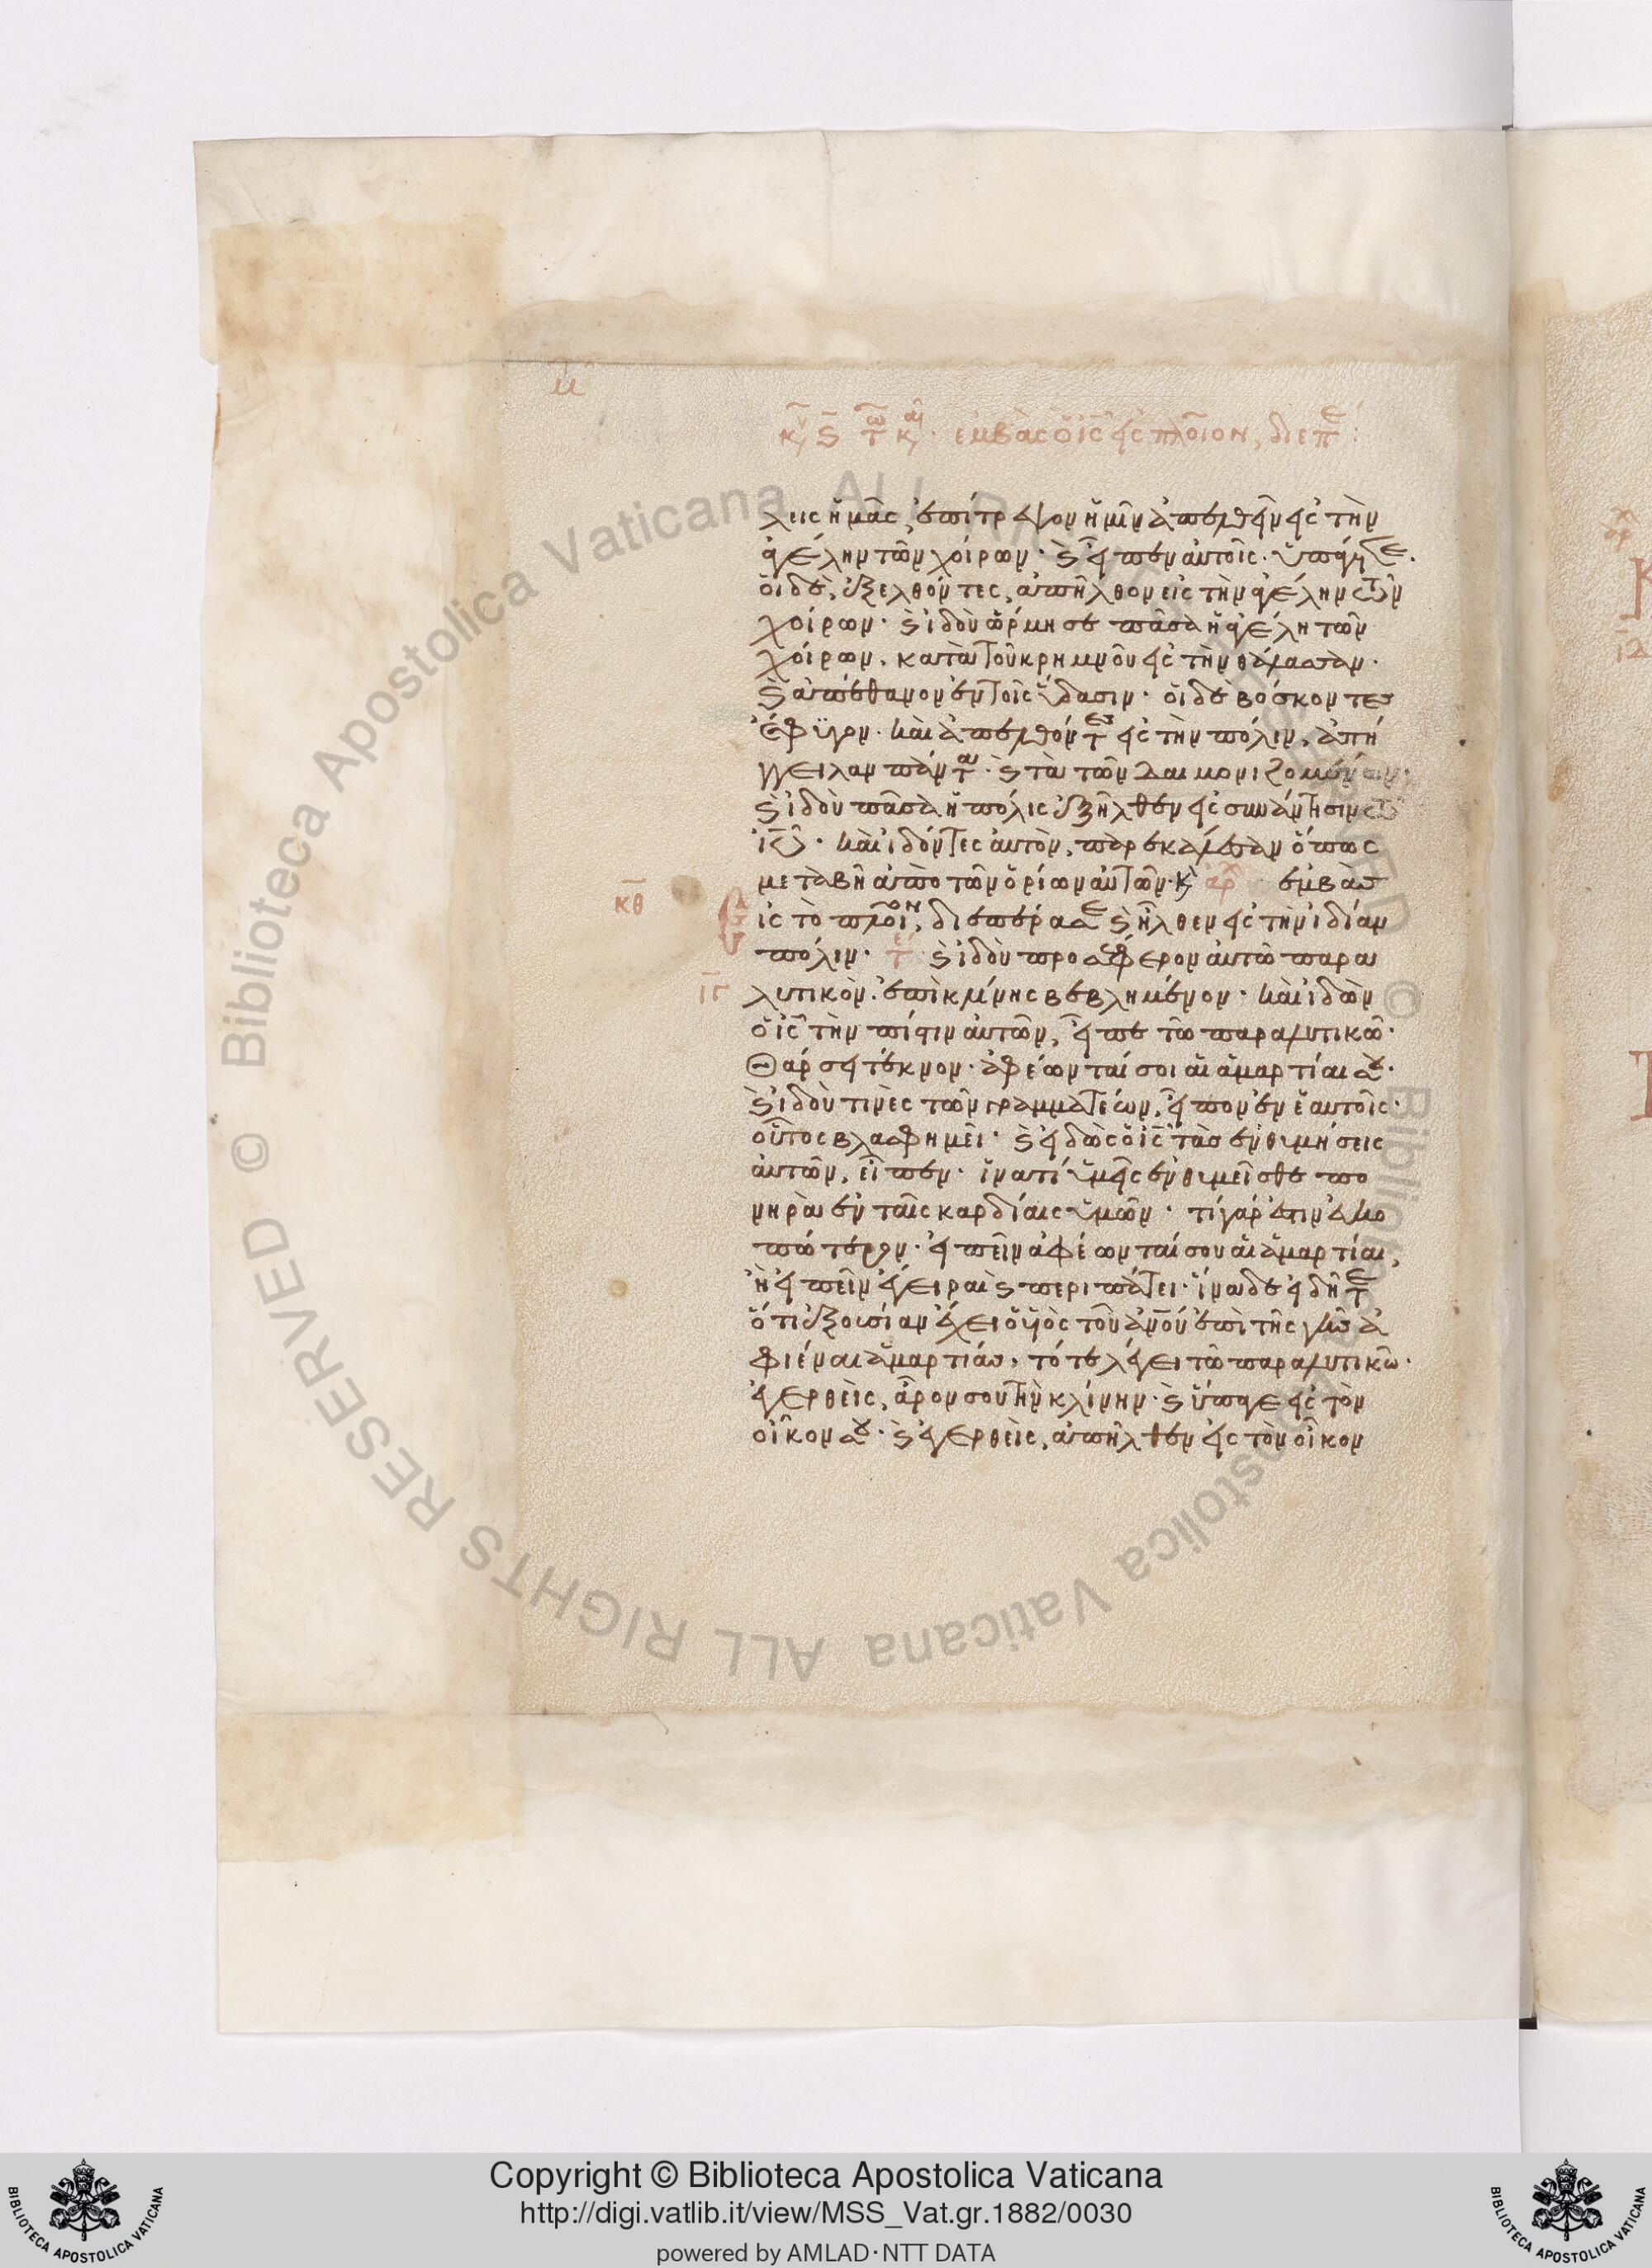 κυ ϛ τω και· ἐμβὰς ὁ ἰς εἰς πλοῖον, διεπε:
λεις ἡμᾶς, ἐπίτρεψον ἡμῖν ἀπελθεῖν εἰς τὴν
ἀγέλην τῶν χοίρων· ϛ εἶπεν αὐτοῖς· ὑπάγετε.
οἱ δὲ, ἐξελθόντες, ἀπῆλθον εἰς τὴν ἀγέλην τῶν
χοίρων· ϛ ἰδοὺ ὥρμησε πᾶσα ἡ ἀγέλη τῶν
χοίρων, κατὰ τοῦ κρημνοῦ εἰς τὴν θάλασσαν·
ϛ ἀπέθανον ἐν τοῖς ὕδασιν· οἱ δὲ βόσκοντες
ἔφυγον· καὶ ἀπελθόντες εἰς τὴν πόλιν, ἀπή
γγειλαν πάντα· ϛ τὰ τῶν δαιμονιζομένων·
ϛ ἰδοὺ πᾶσα ἡ πόλις ἐξῆλθεν εἰς συνάντησιν τῶ
ἰῦ· καὶ ἰδόντες αὐτὸν, παρεκάλεσαν ὅπως
μεταβῆ ἀπὸ τῶν ὁρίων αὐτῶν· κ αρχ ἐμβὰς
κθ
εἰς τὸ πλοῖον, διεπέρασε ϛ ἦλθεν εἰς τὴν ἰδίαν
πόλιν· τε ϛ ἰδοὺ προσέφερον αὐτῶ παρα
ιγ
λυτικὸν, ἐπὶ κλίνης βεβλημένον· καὶ ἰδὼν
ὁ ἰς τὴν πίστιν αὐτῶν, εἶπε τῶ παραλυτικῶ·
Θάρσει τέκνον· ἀφέωνταί σοι αἱ ἁμαρτίαι σου·
ϛ ἰδοὺ τινὲς τῶν γραμματέων, εἶπον ἐν ἑαυτοῖς·
οὗτος βλασφημεῖ· ϛ εἰδὼς ὁ ἰς τὰς ἐνθυμήσεις
αὐτῶν, εἶπεν· ἵνατί ὑμεῖς ἐνθυμεῖσθε πο
νηρὰ ἐν ταῖς καρδίαις ὑμῶν· τί γάρ ἐστιν εὐκο
πώτερον· εἰπεῖν ἀφέωνταί σου αἱ ἁμαρτίαι,
ἢ εἰπεῖν ἔγειραι ϛ περιπάτει· ἵνα δὲ εἰδῆτε
ὅτι ἐξουσίαν ἔχει ὁ υἱὸς τοῦ ἀνού ἐπὶ τῆς γῆς ἀ
φιέναι ἁμαρτίας, τότε λέγει τῶ παραλυτικῶ·
ἐγερθεὶς, ἆρον σου τὴν κλίνην· ϛ ὕπαγε εἰς τὸν
οἶκον σου· ϛ ἐγερθεὶς, ἀπῆλθεν εἰς τὸν οἶκον
Copyright © Biblioteca Apostolica Vaticana
http://digi.vatlib.it/view/MSS_Vat.gr.1882/0030
powered by AMLAD·NTT DATA
© Biblioteca Apostolica Vaticana ALL RIGHTS RESERVED
© Biblioteca Apostolica Vaticana ALL RIGHTS RESERVED
BIBLIOTECA APOSTOLICA VATICANA
BIBLIOTECA APOSTOLICA VATICANA